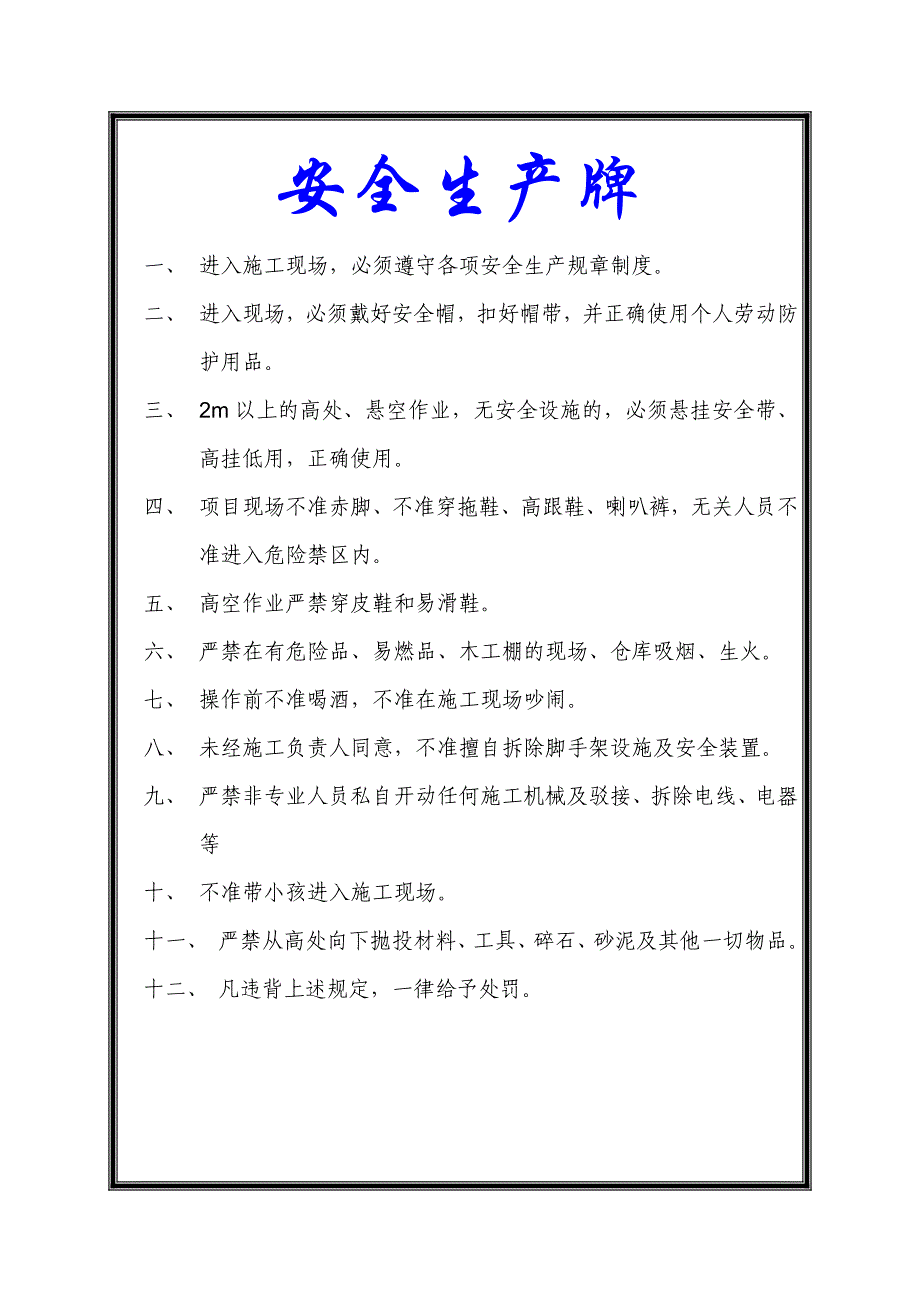 安全生产牌
一、 进入施工现场，必须遵守各项安全生产规章制度。
二、 进入现场，必须戴好安全帽，扣好帽带，并正确使用个人劳动防
护用品。
三、 2m 以上的高处、悬空作业，无安全设施的，必须悬挂安全带、
高挂低用，正确使用。
四、 项目现场不准赤脚、不准穿拖鞋、高跟鞋、喇叭裤，无关人员不
准进入危险禁区内。
五、 高空作业严禁穿皮鞋和易滑鞋。
六、 严禁在有危险品、易燃品、木工棚的现场、仓库吸烟、生火。
七、 操作前不准喝酒，不准在施工现场吵闹。
八、 未经施工负责人同意，不准擅自拆除脚手架设施及安全装置。
九、 严禁非专业人员私自开动任何施工机械及驳接、拆除电线、电器
等
十、 不准带小孩进入施工现场。
十一、 严禁从高处向下抛投材料、工具、碎石、砂泥及其他一切物品。
十二、 凡违背上述规定，一律给予处罚。